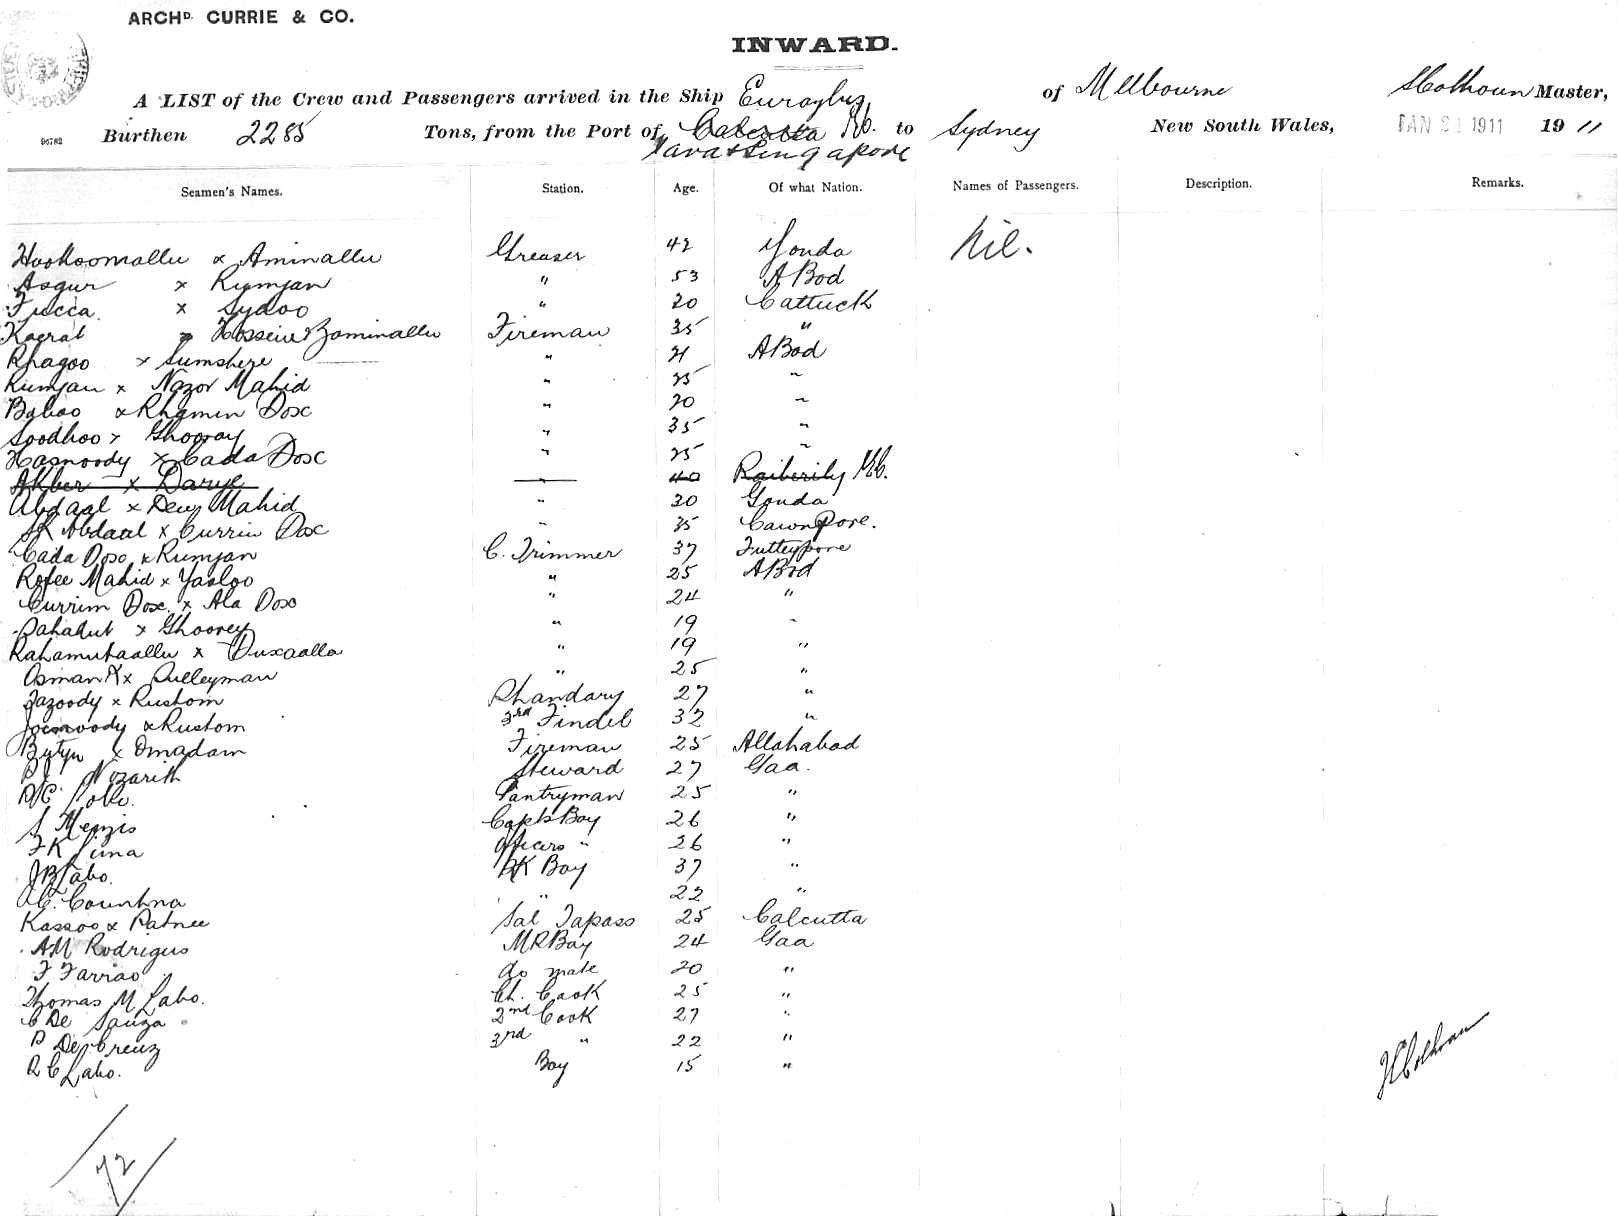 ARCHD. CURRIE & CO.
INWARD.
A LIST of the Crew and Passengers arrived in the Ship Euryalus of Melbourne Colhoun Master,
96782 Burthen 2285 Tons, from the Port of Calcutta to Sydney New South Wales, JAN 21 1911 19 11
Java & Singapore
Seamen's Names. Station. Age. Of what Nation. Names of Passengers. Description. Remarks.
Hookoomallu x Aminallu Greaser 42 Gonda Nil.
Asgur x Rumjan " 53 A Bod
Fucca x Sydoo " 20 Cattuck
x Hossein Fireman 35 "
Rhagoo x Sumshere " 21 A Bod
Rumjan x Nazor Mahid " 25 "
Baboo x Rhamen Dox " 20 "
Soodhoo x Ghooray " 35 "
Hasnoody x Cada Dox " 25 "
Akber x Darye 40 Raiberily
Abdaal x Dewj Mahid " 30 Gonda
SK Abdaal x Currim Dox " 35 Cawnpore.
Cada Dox x Rumjan C. Trimmer 37 Futteypore
Rofee Mahid x Yasloo " 25 A Bod
Currim Dox x Ala Dox " 24 "
x Ghoorey " 19 "
Rahamutaallu x Buxaalla " 19 "
Osman x Sulleyman " 25 "
Fazoody x Rustom Bhandary 27 "
x Rustom 3rd Tindel 32 "
x Omadam Fireman 25 Allahabad
Nozarith Steward 27 Goa.
Pantryman 25 "
S Menzis Capts Boy 26 "
F K Lima Officers " 26 "
J B Labo. Boy 37 "
A C. Countina " 22 "
Kassoo x Ratnee Sal Tapass 25 Calcutta
A M Rodrigus M R Boy 24 Goa
F Farrao do mate 20 "
Thomas M Labo. Ch. Cook 25 "
C De Souza 2nd Cook 27 "
P De Creuz 3rd " 22 "
A C Labo. Boy 15 "
Colhoun
72